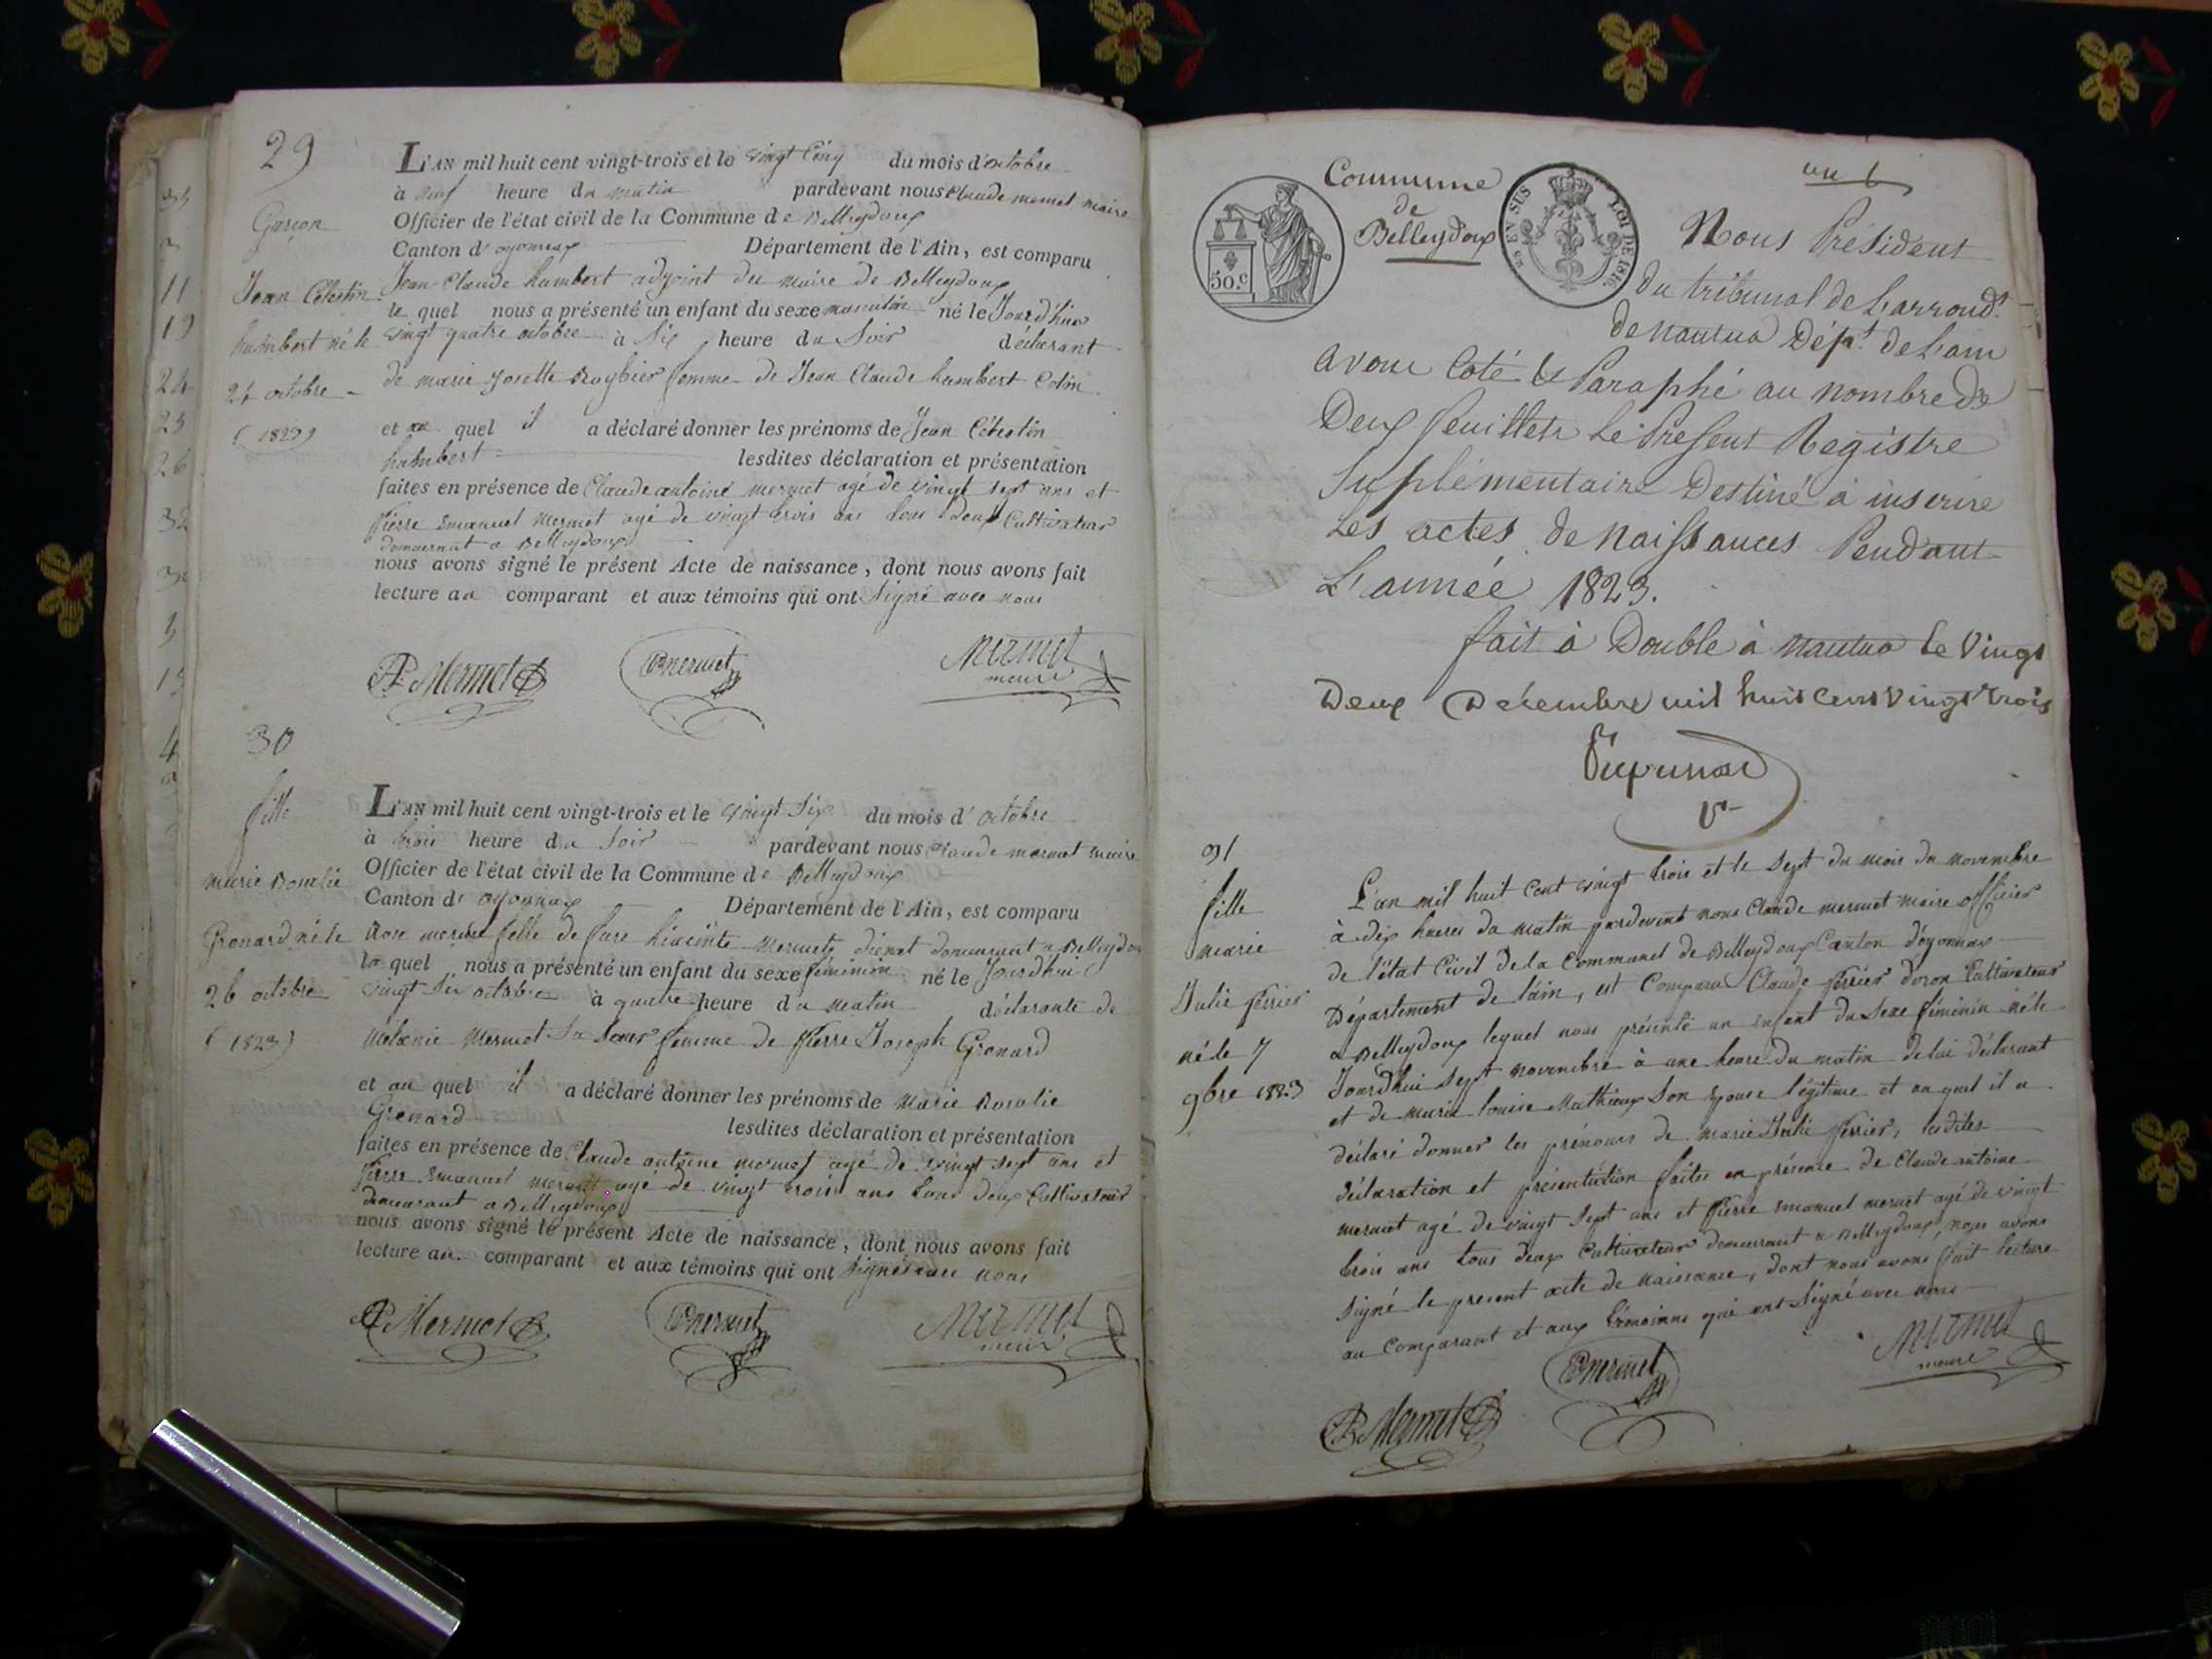 29
Garçon
Jean Célestin
humbert né le
24 octobre
(1823)
L'AN mil huit cent vingt-trois et le vingt Cinq du mois d'octobre
à neuf heure du matin pardevant nous Claude mermet maire
Officier de l'état civil de la Commune de Belleydoux
Canton d'oyonnax Département de l'Ain, est comparu
Jean Claude humbert adjoint du maire de Belleydoux
le quel nous a présenté un enfant du sexe masculin né le Jourd'hier
vingt quatre octobre à Six heure du Soir déclarant
de marie Josette Roybier femme de Jean Claude humbert Colin
et au quel il a déclaré donner les prénoms de Jean Célestin
humbert lesdites déclaration et présentation
faites en présence de Claude antoine mermet agé de vingt sept ans et
Pierre Emanuel mermet agé de vingt trois ans tous deux Cultivateur
demeurant a Belleydoux
nous avons signé le présent Acte de naissance, dont nous avons fait
lecture au comparant et aux témoins qui ont Signé avec nous
Mermet mermet mermet
maire
30
fille
marie Rosalie
Gronard né le
26 octobre
(1823)
L'AN mil huit cent vingt-trois et le vingt Six du mois d'octobre
à trois heure du Soir pardevant nous Claude mermet maire
Officier de l'état civil de la Commune de Belleydoux
Canton d'oyonnax Département de l'Ain, est comparu
Rose mermet fille de hiacinte mermet demeurant a Belleydoux
la quel nous a présenté un enfant du sexe féminin né le Jourdhui
vingt Six octobre à quatre heure du matin déclarante de
Mélanie Mermet Sa Soeur femme de Pierre Joseph Gronard
et au quel il a déclaré donner les prénoms de Marie Rosalie
Gronard lesdites déclaration et présentation
faites en présence de Claude antoine mermet agé de vingt sept ans et
Pierre Emanuel mermet agé de vingt trois ans tous deux Cultivateur
demeurant a Belleydoux
nous avons signé le présent Acte de naissance, dont nous avons fait
lecture au comparant et aux témoins qui ont Signés avec nous
Mermet mermet mermet
maire
Commune
de
Belleydoux
50.c
EN SUS LOI DE 1816
Nous Président
du tribunal de Larrond.t
de Nantua Dép.t de Lain
avons Coté & Paraphé au nombre de
Deux feuillets Le Present Registre
Suplémentaire Destiné à inscrire
Les actes de Naissances Pendant
L'année 1823.
fait à Double à Nantua le Vingt
Deux Décembre mil huit Cent Vingt Trois
31
fille
marie
Julie ferrier
né le 7
9bre 1823
L'an mil huit Cent vingt trois et le Sept du mois du novembre
à dix heures du matin pardevant nous Claude mermet maire officier
de l'état Civil de la Commune de Belleydoux Canton d'oyonnax
Département de l'ain, est Comparu Claude ferrier Cultivateur
a Belleydoux lequel nous présenté un enfant du Sexe féminin né le
Jourdhui Sept novembre à une heure du matin de lui déclarant
et de marie louise Mathieux Son épouse légitime et au quel il a
déclaré donner les prénoms de marie Julie ferrier, lesdites
déclaration et présentation faites en présence de Claude antoine
mermet agé de vingt Sept ans et Pierre emanuel mermet agé de vingt
trois ans tous deux Cultivateur demeurant a Belleydoux, nous avons
Signé le present acte de naissance, dont nous avons fait lecture
au Comparant et aux témoinns qui ont Signé avec nous
Mermet mermet mermet
maire